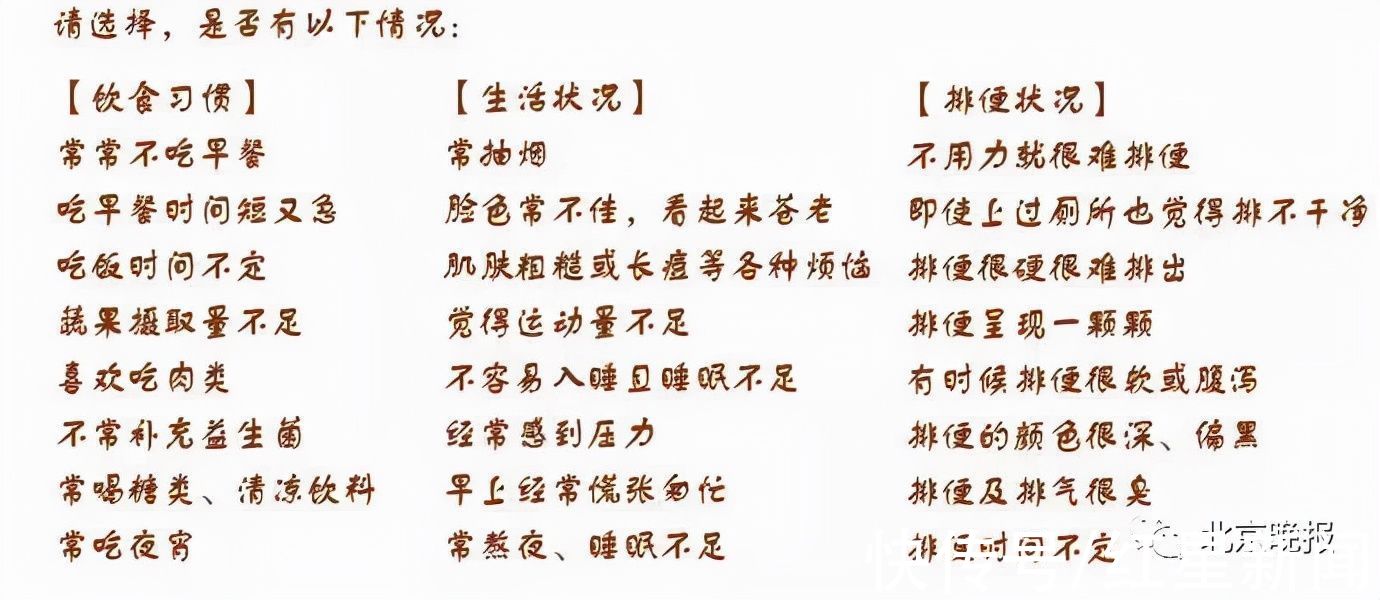 请选择，是否有以下情况：
【饮食习惯】
常常不吃早餐
吃早餐时间短又急
吃饭时间不定
蔬果摄取量不足
喜欢吃肉类
不常补充益生菌
常喝糖类、清凉饮料
常吃夜宵
【生活状况】
常抽烟
脸色常不佳，看起来苍老
肌肤粗糙或长痘等各种烦恼
觉得运动量不足
不容易入睡且睡眠不足
经常感到压力
早上经常慌张匆忙
常熬夜、睡眠不足
【排便状况】
不用力就很难排便
即使上过厕所也觉得排不干净
排便很硬很难排出
排便呈现一颗颗
有时候排便很软或腹泻
排便的颜色很深、偏黑
排便及排气很臭
排便时间不定
北京晚报
快传号/红星新闻